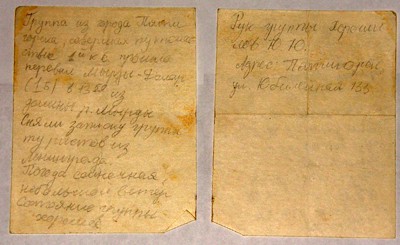 Группа из города Пятиго
горска, совершая путешест
ствие 2й к.с. прошла
перевал Мырды-
(1Б) в 13 00 из
долины р. Мырды
Сняли записку группы
туристов из
Ленинграда
Погода солнечная
небольшой ветер
Состояние группы
хорошее
Рук группы
лов Ю. Ю.
Адрес Пятигорск
ул Юбилейная 133